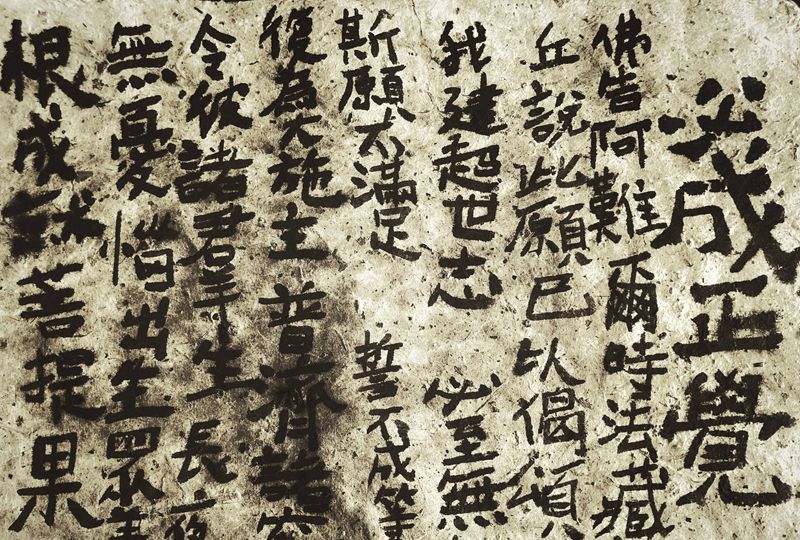 必成正覺
佛告阿難爾時法藏
丘說此願已以偈頌
我建超世志 必至無
斯願不滿足 誓不成等
復為大施主 普濟諸窮
令彼諸羣生 長夜
無憂惱 出生眾善
根成就菩提果